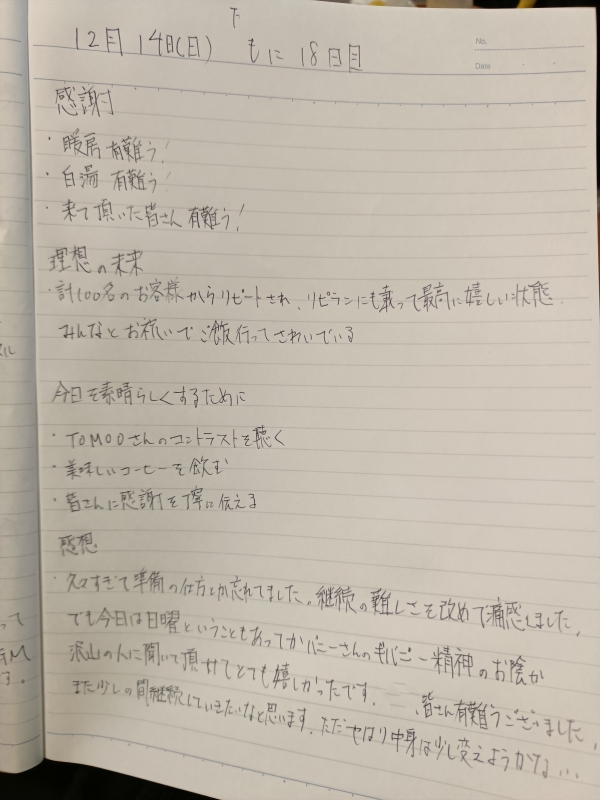 た
12月14日(日) もに 18日目
No.
Date
感謝
・暖房 有難う!
・白湯 有難う!
・来て頂いた皆さん 有難う!
理想の未来
・計100名のお客様からリピートされ、リピランにも載って最高に嬉しい状態、
みんなとお祝いでご飯行ってさわいでいる
今日を素晴らしくするために
・TOMOOさんのコントラストを聴く
・美味しいコーヒーを飲む
・皆さんに感謝を丁寧に伝える
感想
・久々すぎて準備の仕方とか忘れてました。継続の難しさを改めて痛感しました。
でも今日は日曜ということもあってかバニーさんのギバごー精神のお陰か
沢山の人に聞いて頂けてとても嬉しかったです。 皆さん有難うございました。
また少しの間継続していきたいなと思います。ただやはり中身は少し変えようかな...
って
M
す。
ル